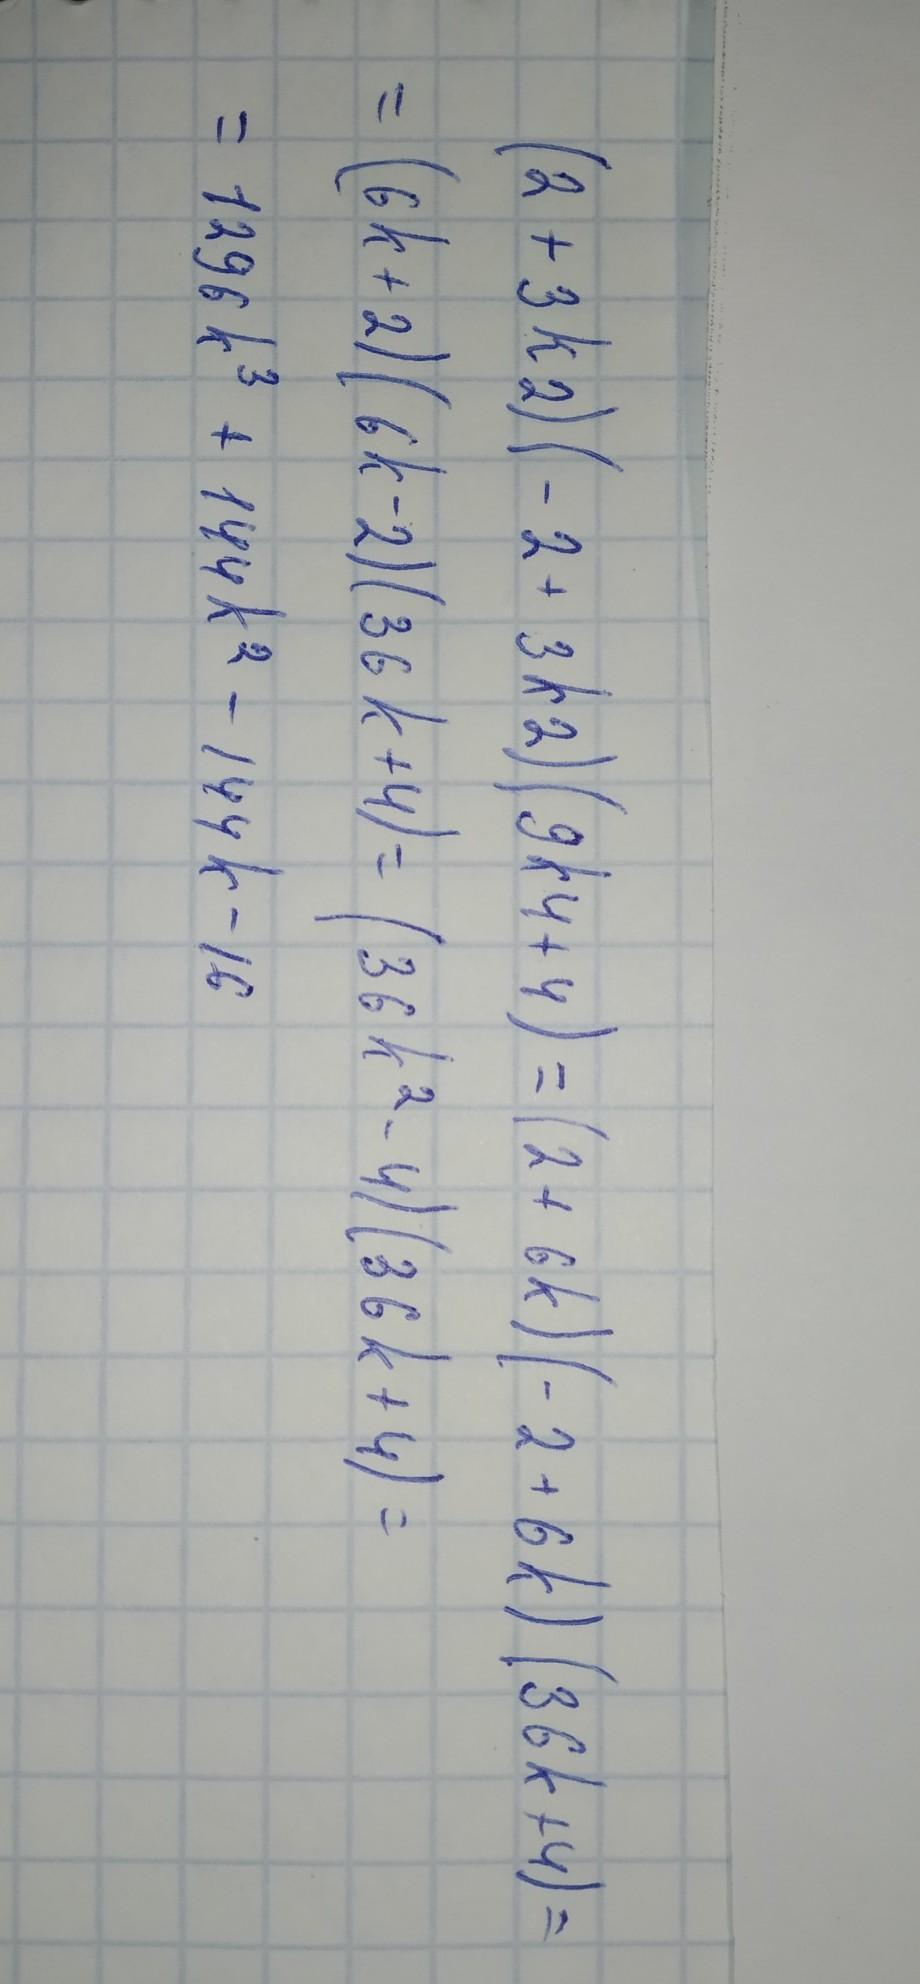 (2 + 3k2)(- 2 + 3k2)(9k4 + 4) = (2 + 6k)(- 2 + 6k)(36k + 4) =
= (6k + 2)(6k - 2)(36k + 4) = (36k² - 4)(36k + 4) =
= 1296k³ + 144k² - 144k - 16